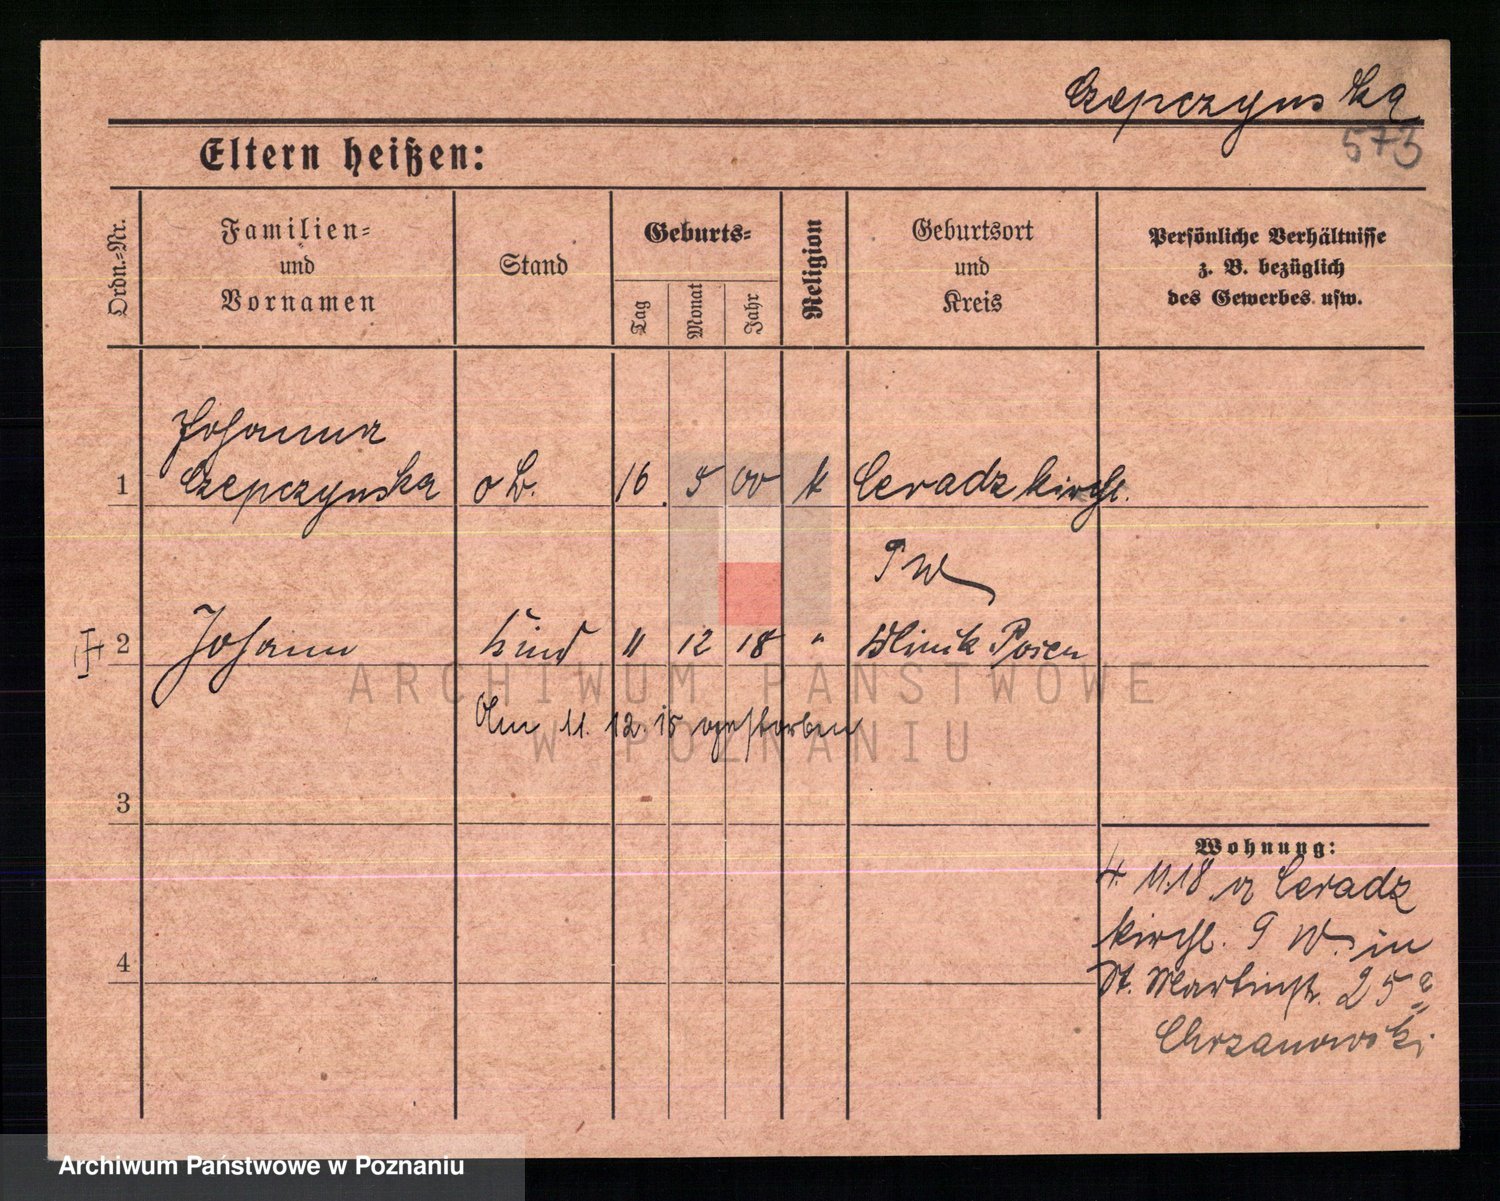 Czepczynska
573
Eltern heißen:
Ordn.-Nr.
Familien-
und
Vornamen
Stand
Geburts-
Tag
Monat
Jahr
Religion
Geburtsort
und
Kreis
Persönliche Verhältnisse
z. B. bezüglich
des Gewerbes usw.
Johanna
1 Czepczynska o B. 16. 5 00 k Ceradz kirchl.
P W
2 Johann Kind 11 12 18 " Klinik Posen
Am 11. 12. 18 gestorben
3
Wohnung:
4. 11. 18 Ceradz
kirchl. P W. in
St. Martinstr. 25
4
Chrzanowski.
ARCHIWUM PAŃSTWOWE
W POZNANIU
Archiwum Państwowe w Poznaniu